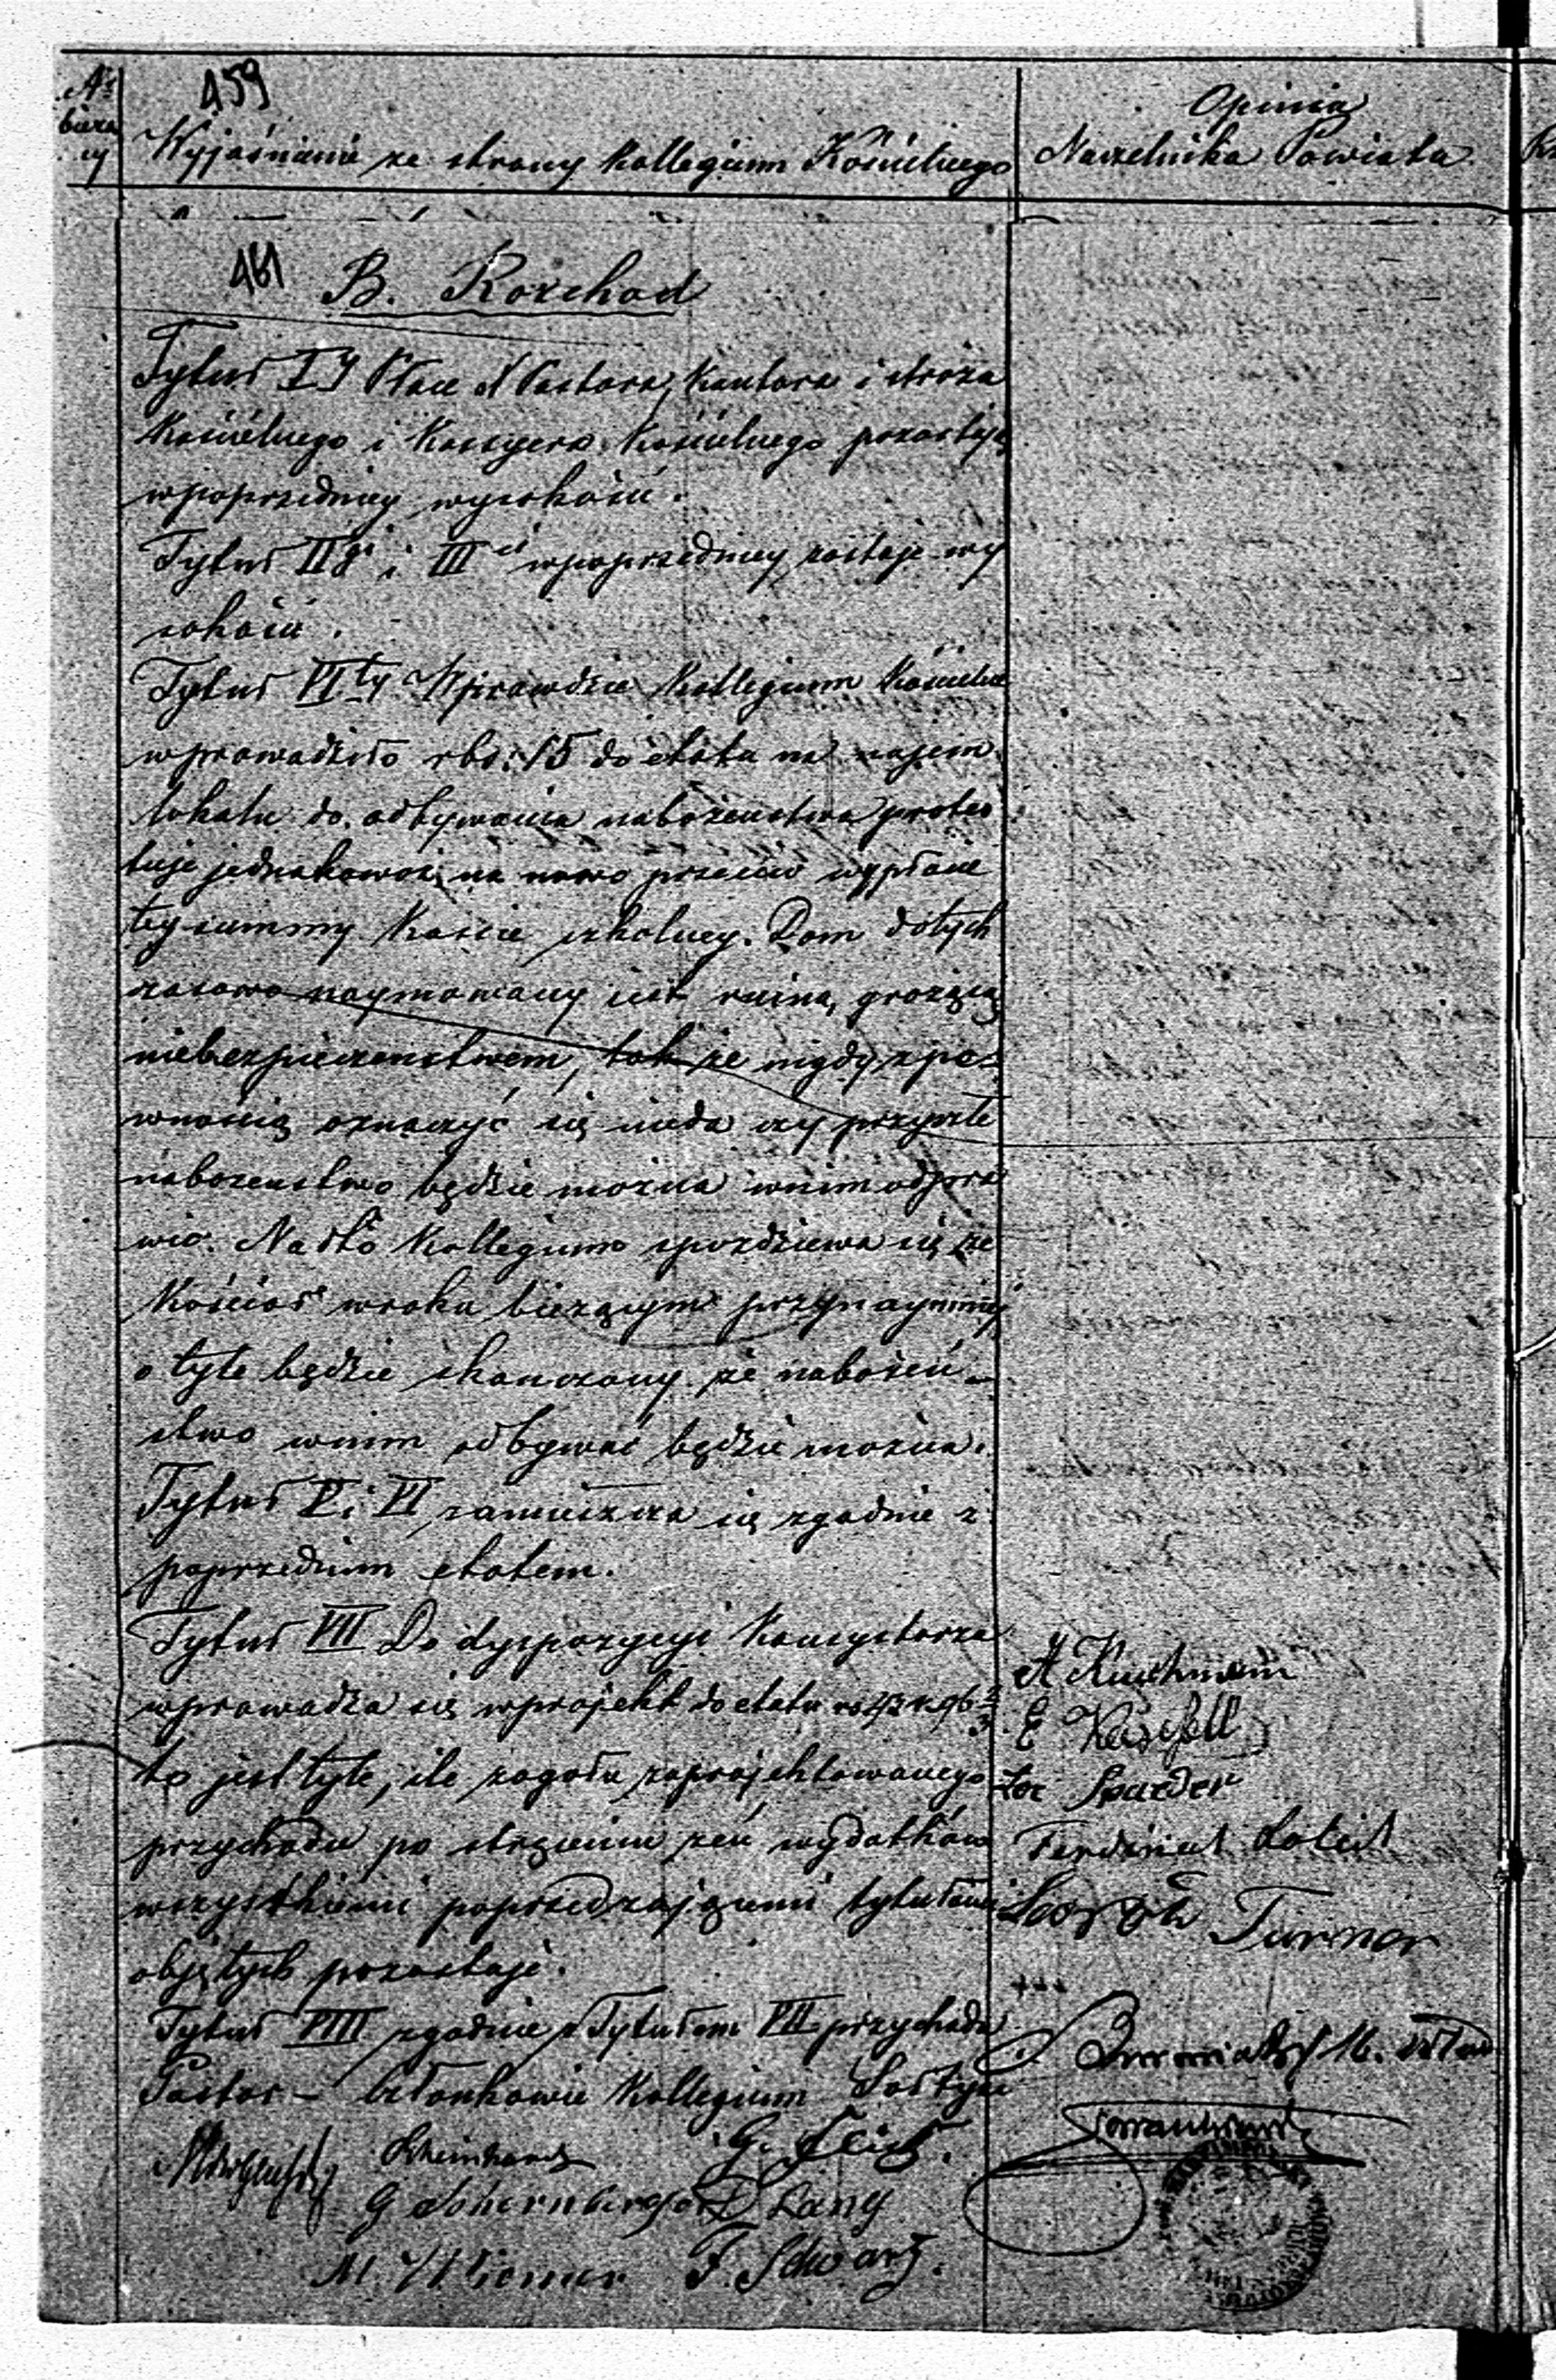 №
bieżą
cy
459
Wyjaśnienie ze strony Kollegium Kościelnego
Opinia
Naczelnika Powiatu
461
B. Rozchod
Tytuł I y Płace Pastora, Kantora i stróża
Kościelnego i Kassyera Kościelnego pozostają
wpoprzedniey wysokości.
Tytuł II gi i III ci wpoprzedniey zostaje wy
sokości.
Tytuł VI ty Wprawdzie Kollegium Kościelne
wprowadziło rbs: 15 do etatu na najem
lokalu do odbywania nabożeństwa protes
tuje jednakowoż na nowo przeciw wypłacie
tey summy Kassie szkolney. Dom dotych
czasowo naymowany jest ruiną, grożącą
niebezpieczenstwem, tak że nigdy z pe-
wnością oznaczyć się nieda czy przyszłe
nabozenstwo będzie można wnim odpra
wić. Nadto Kollegium spodziewa się że
Kościoł wroku bieżącym przynaymniej
o tyle będzie skonczony że nabożeń-
stwo wnim odbywać będzie można.
Tytuł V i VI zamieszcza się zgodnie z
poprzednim etatem.
Tytuł VII Do dyspozycyi Konsystorza
wprowadza się wprojekt do etatu rs
to jest tyle, ile zogołu zaprojektowanego
przychodu po strąceniu zeń wydatków
wszystkiemi poprzedzającemi tytułami
objętych pozostaje.
Tytuł VIII zgodnie z Tytułem VII przychodu
Pastor - Członkowie Kollegium Sołtysi
E
Ferdinat
Joseph Turner
+++
G.
G Scharnberger D Lang
M. F. Schwarz.